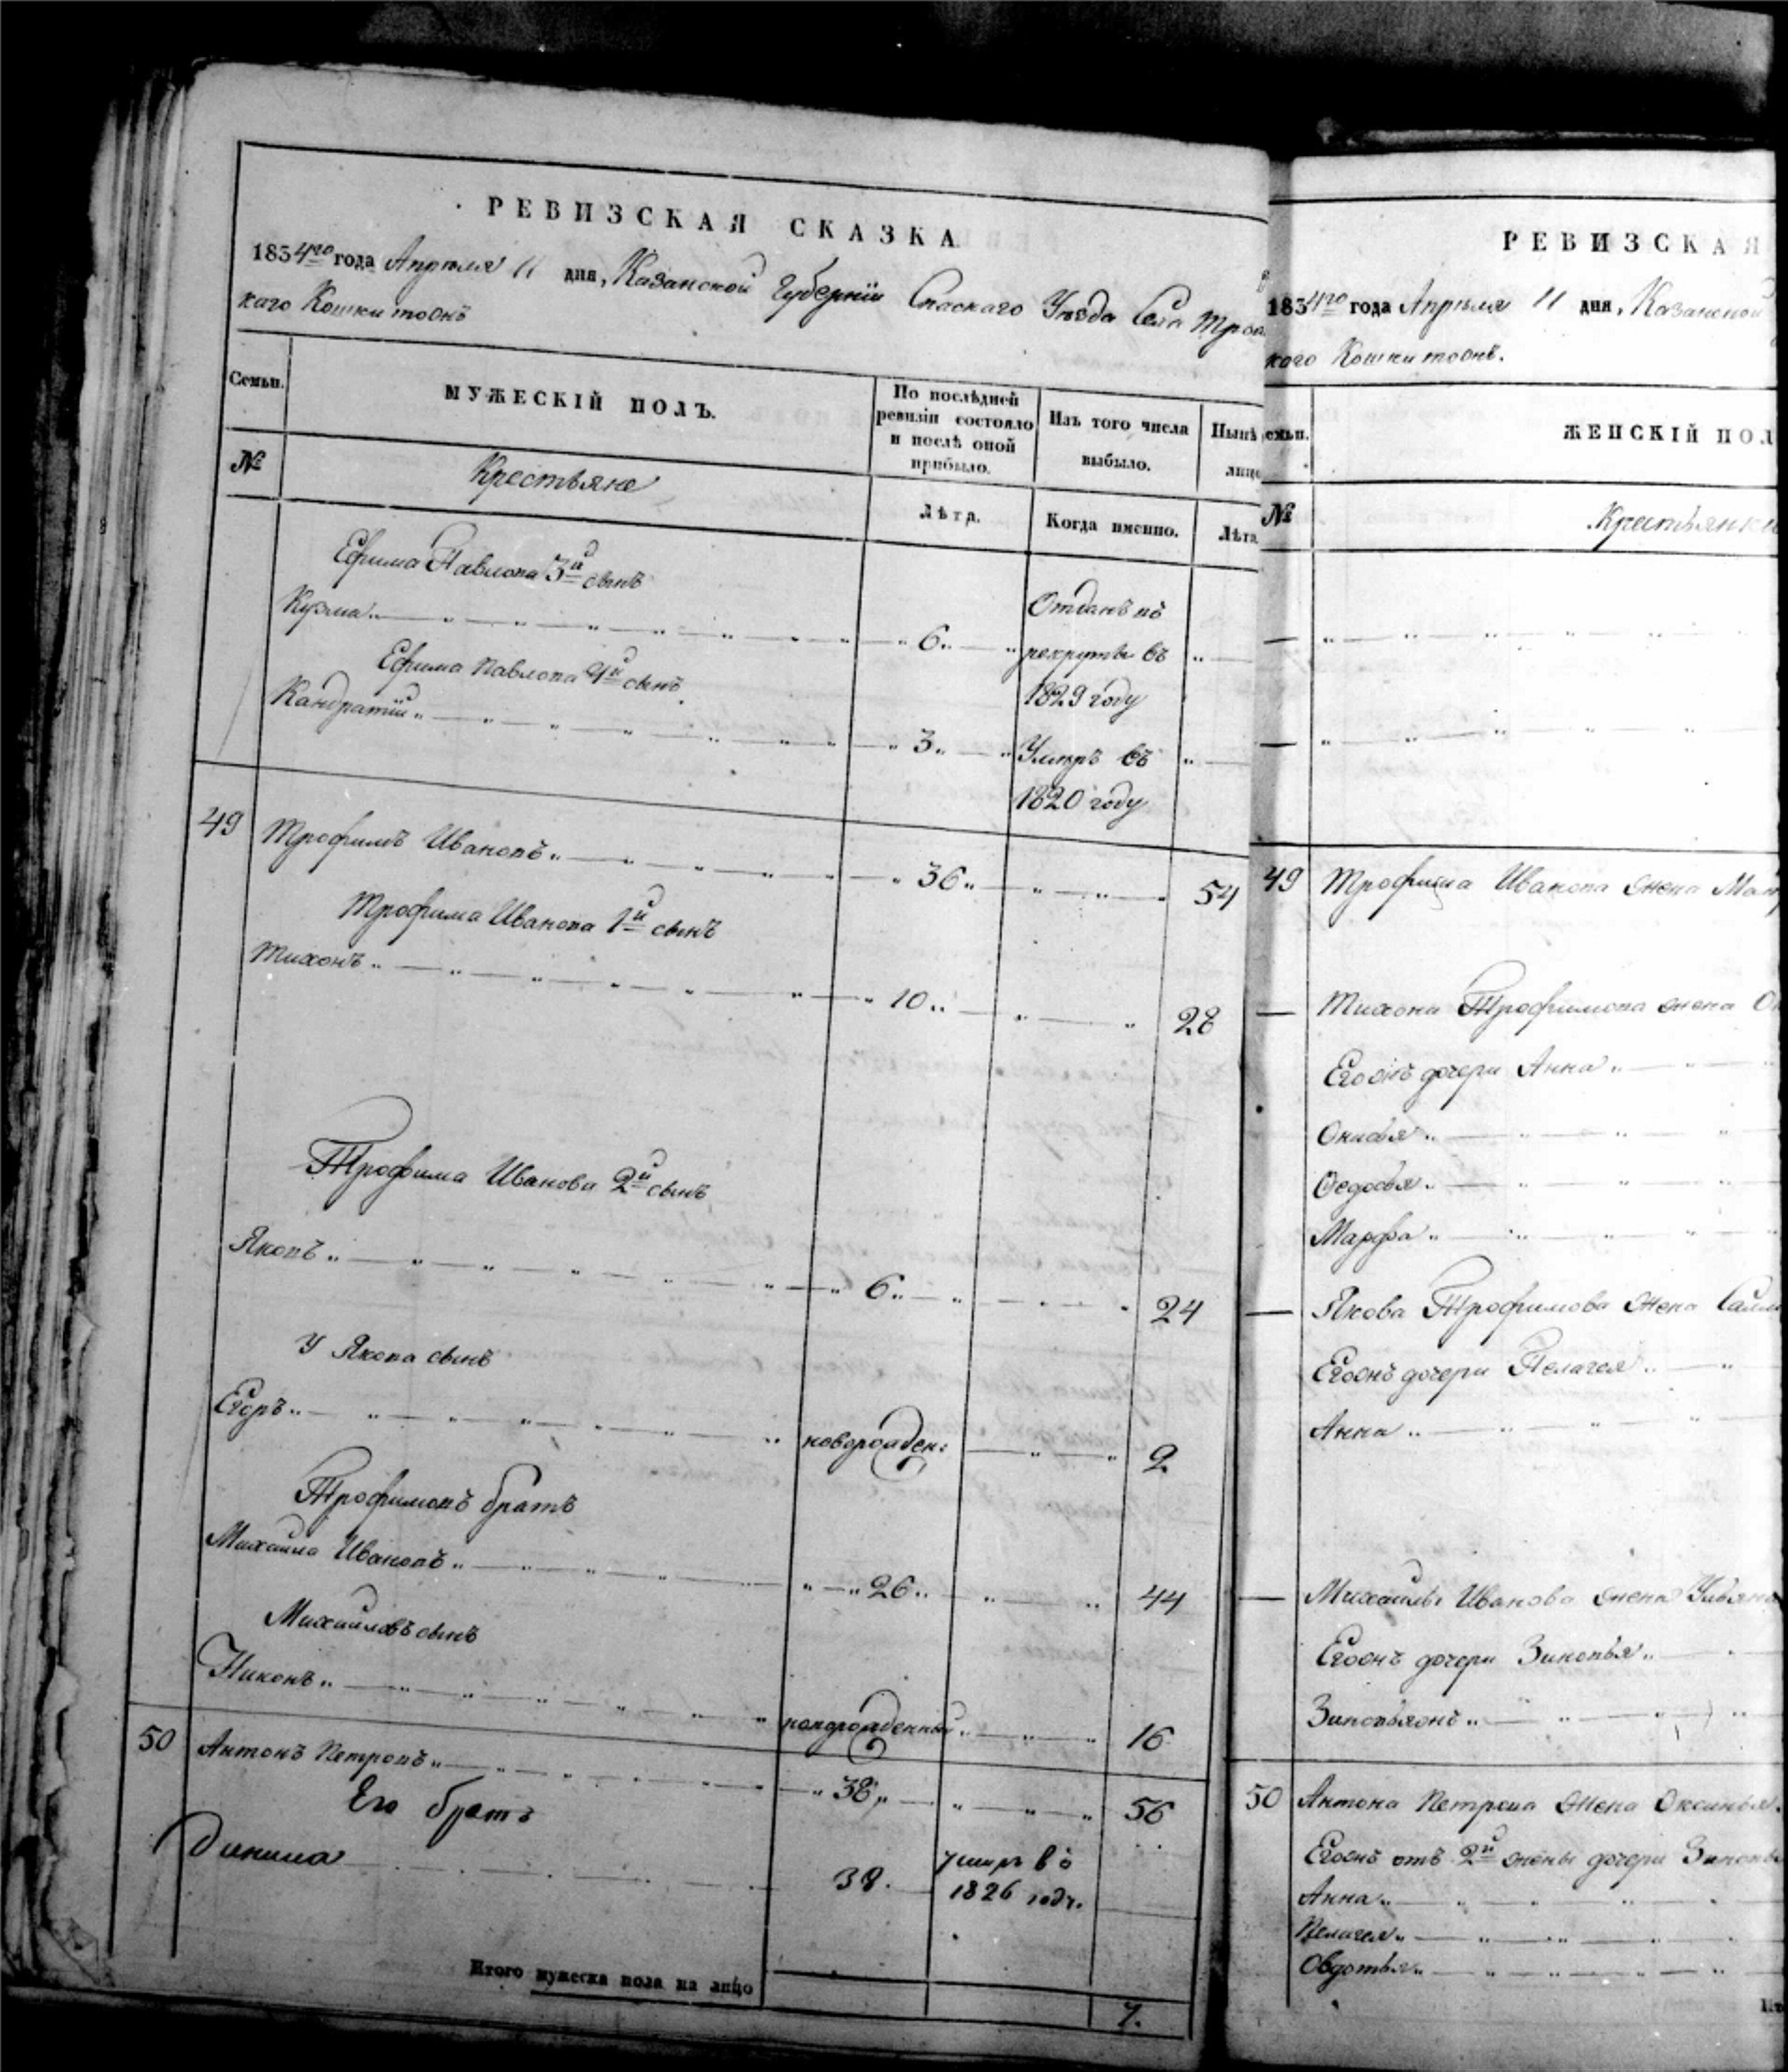 РЕВИЗСКАЯ СКАЗКА
1834го года Апреля 11 дня, Казанской Губернiи Спаскаго Уезда Села Трои
каго Кошки тоонъ
Семьи.
МУЖЕСКIЙ ПОЛЪ.
По послѣдней ревизiи состояло и послѣ оной прибыло.
Изъ того числа выбыло.
Нынѣ лицо
№
Крестьяне
Лѣта.
Когда именно.
Лѣта.
Ефима Павлова 3й сынъ
Кузма 6 Отданъ въ рекруты въ 1829 году
Ефима Павлова 4й сынъ
Кандратiй 3 Умеръ въ 1820 году
49 Трофимъ Ивановъ 36 54
Трофима Иванова 1й сынъ
Тихонъ 10 28
Трофима Иванова 2й сынъ
Яковъ 6 24
У Якова сынъ
Егоръ новорожден: 2
Трофимовъ братъ
Михаила Ивановъ 26 44
Михаиловъ сынъ
Никонъ новорожденный 16
50 Антонъ Петровъ 38 56
Его братъ
Данила 38. умеръ въ 1826 году.
Итого мужеска пола на лицо 7.
РЕВИЗСКАЯ
1834го года Апреля 11 дня, Казанской
каго Кошки тоонъ.
семьи.
ЖЕНСКIЙ ПОЛ
№
Крестьянки
49 Трофима Иванова жена Мат
Тихона Трофимова жена
Егоонъ дочери Анна
Онисья
Федосья
Марфа
Якова Трофимова жена
Егоонъ дочери Пелагея
Анна
Михаилы Иванова жена Ульяна
Егоонъ дочери Зиновья
50 Антона Петрова жена Оксинья
Егоонъ отъ 2й жены дочери Зиновь
Анна
Пелагея
Овдотья